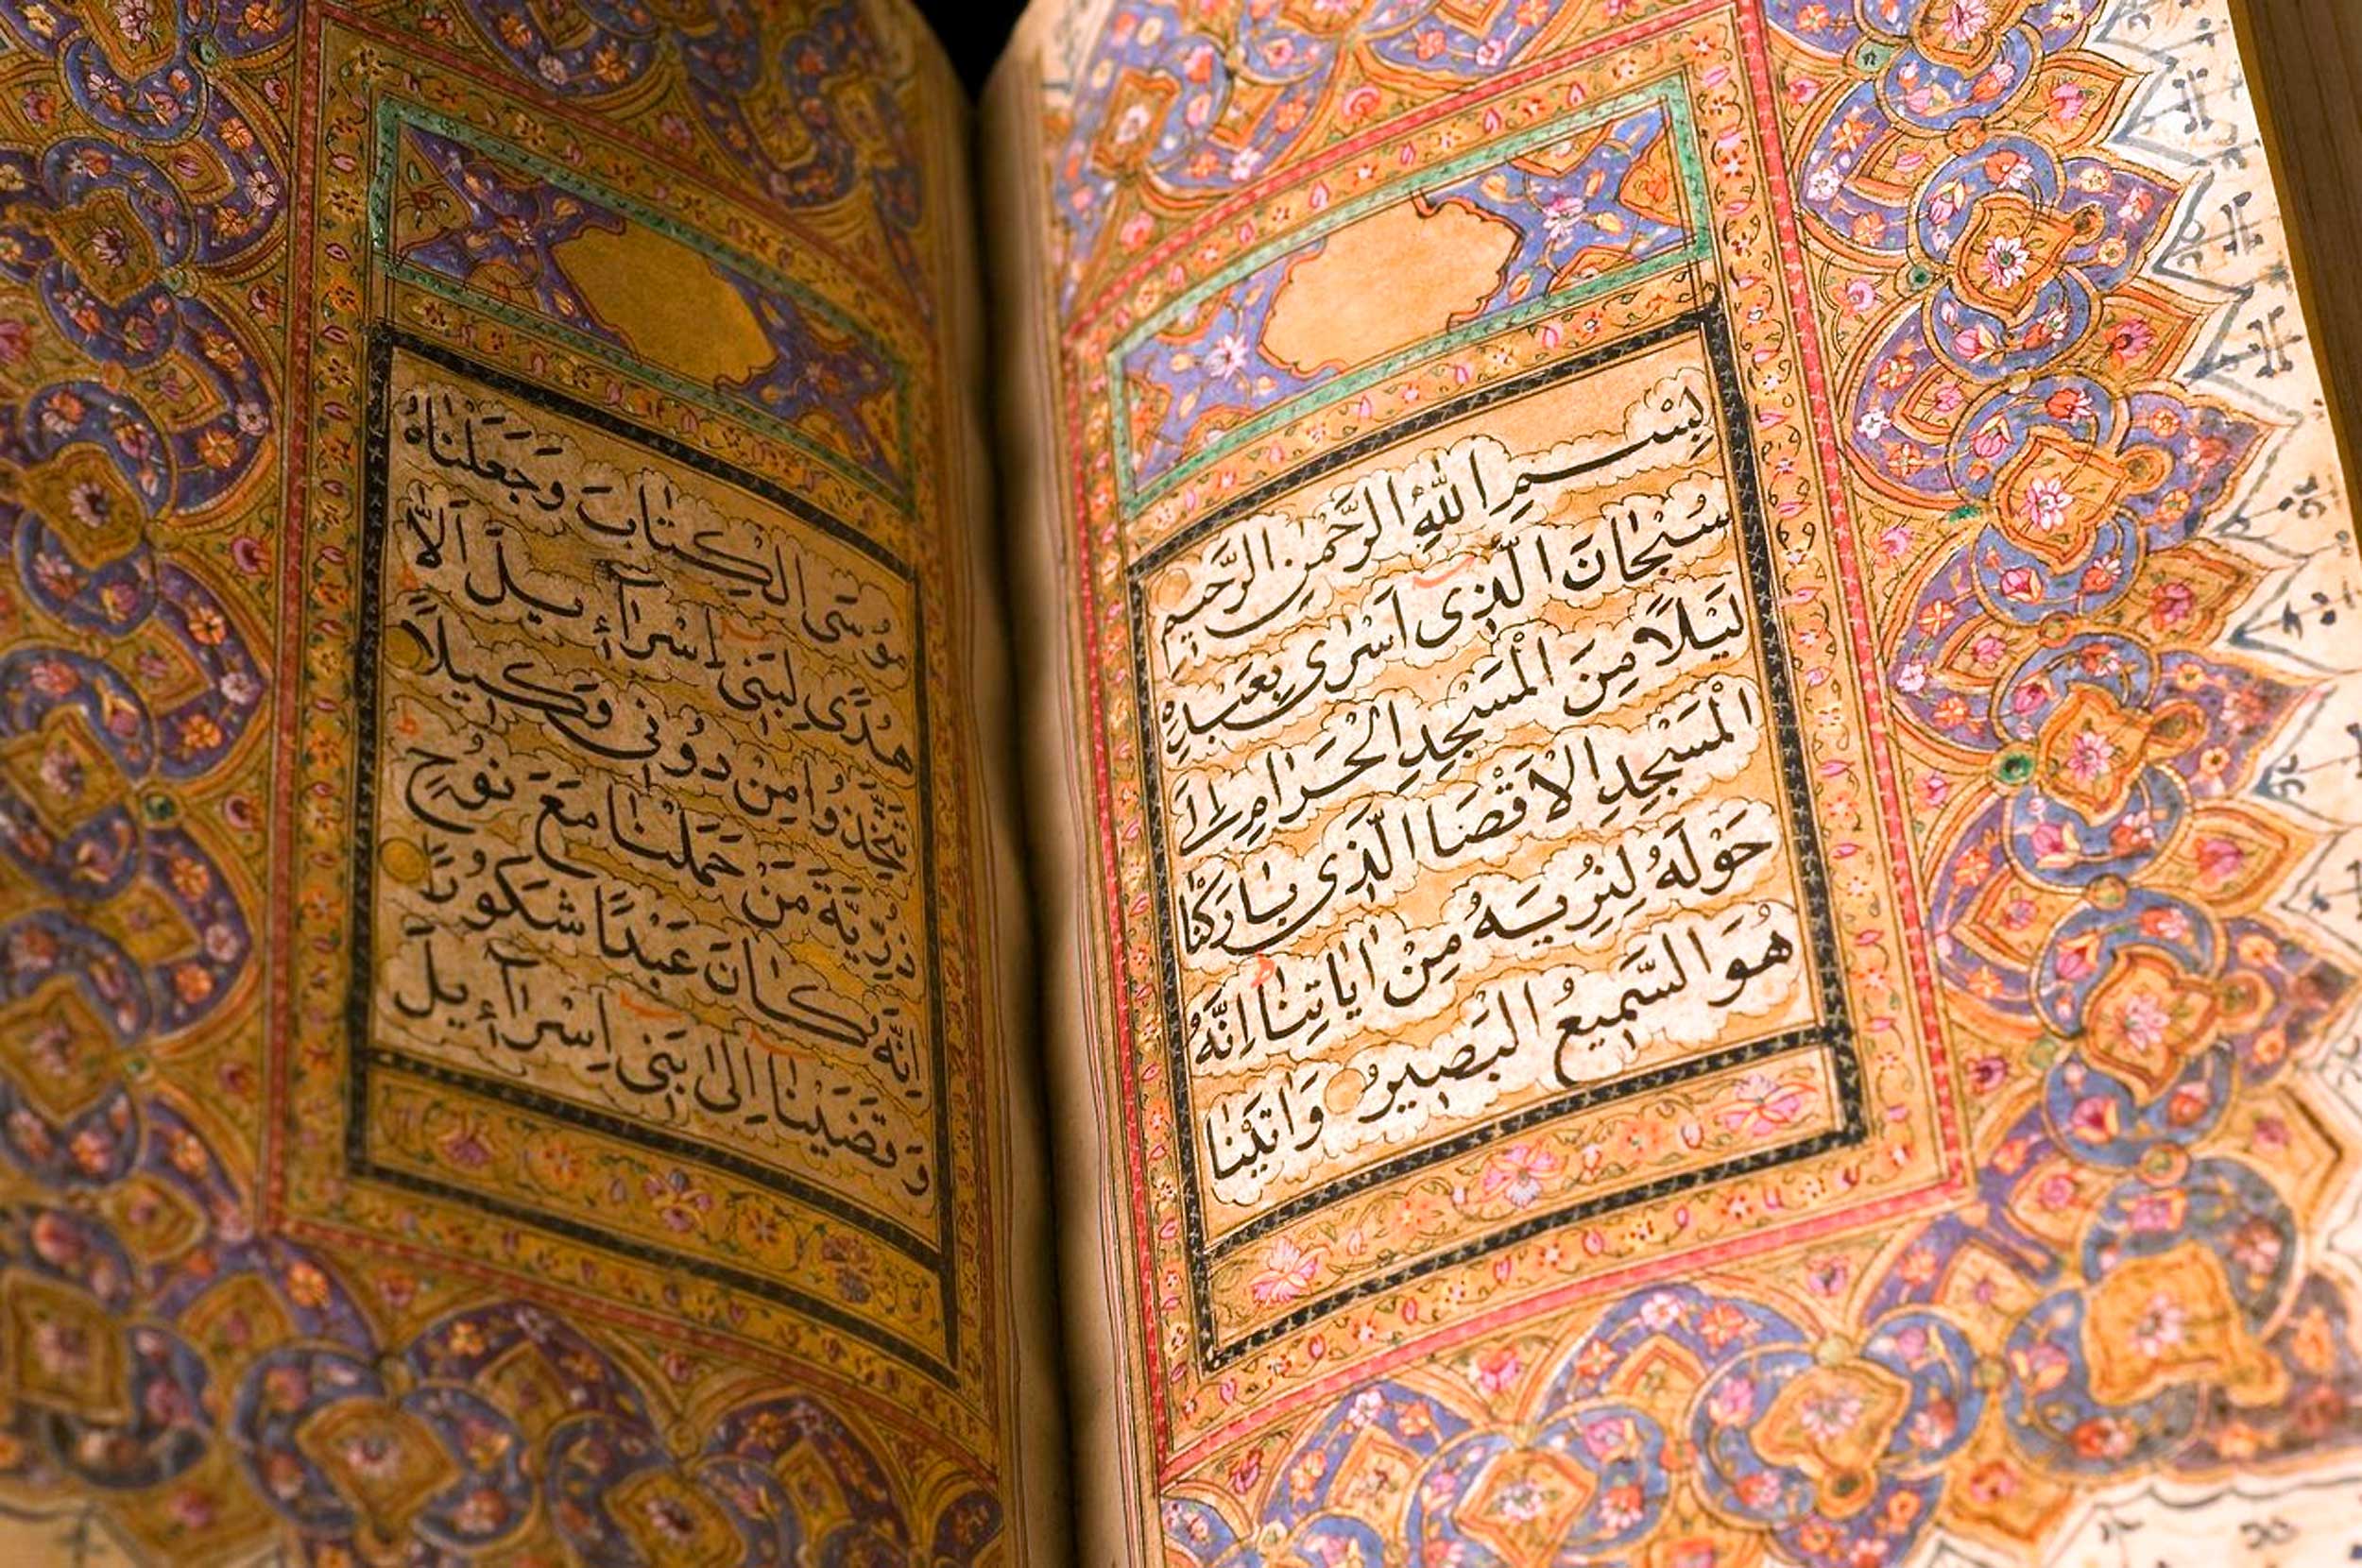 بِسْمِ اللّٰهِ الرَّحْمٰنِ الرَّحِيمِ
سُبْحَانَ الَّذِى اَسْرٰى بِعَبْدِهِ
لَيْلًا مِنَ الْمَسْجِدِ الْحَرَامِ اِلَى
الْمَسْجِدِ الْاَقْصَا الَّذِى بَارَكْنَا
حَوْلَهُ لِنُرِيَهُ مِنْ اٰيَاتِنَا اِنَّهُ
هُوَ السَّمِيعُ الْبَصِيرُ وَاٰتَيْنَا
مُوسَى الْكِتٰابَ وَجَعَلْنَاهُ
هُدًى لِبَنِى اِسْرَآئِيلَ اَلَّا
تَتَّخِذُوا مِنْ دُونِى وَكِيلًا
ذُرِّيَّةَ مَنْ حَمَلْنَا مَعَ نُوحٍ
اِنَّهُ كَانَ عَبْدًا شَكُورًا
وَقَضَيْنَا اِلٰى بَنِى اِسْرَآئِيلَ